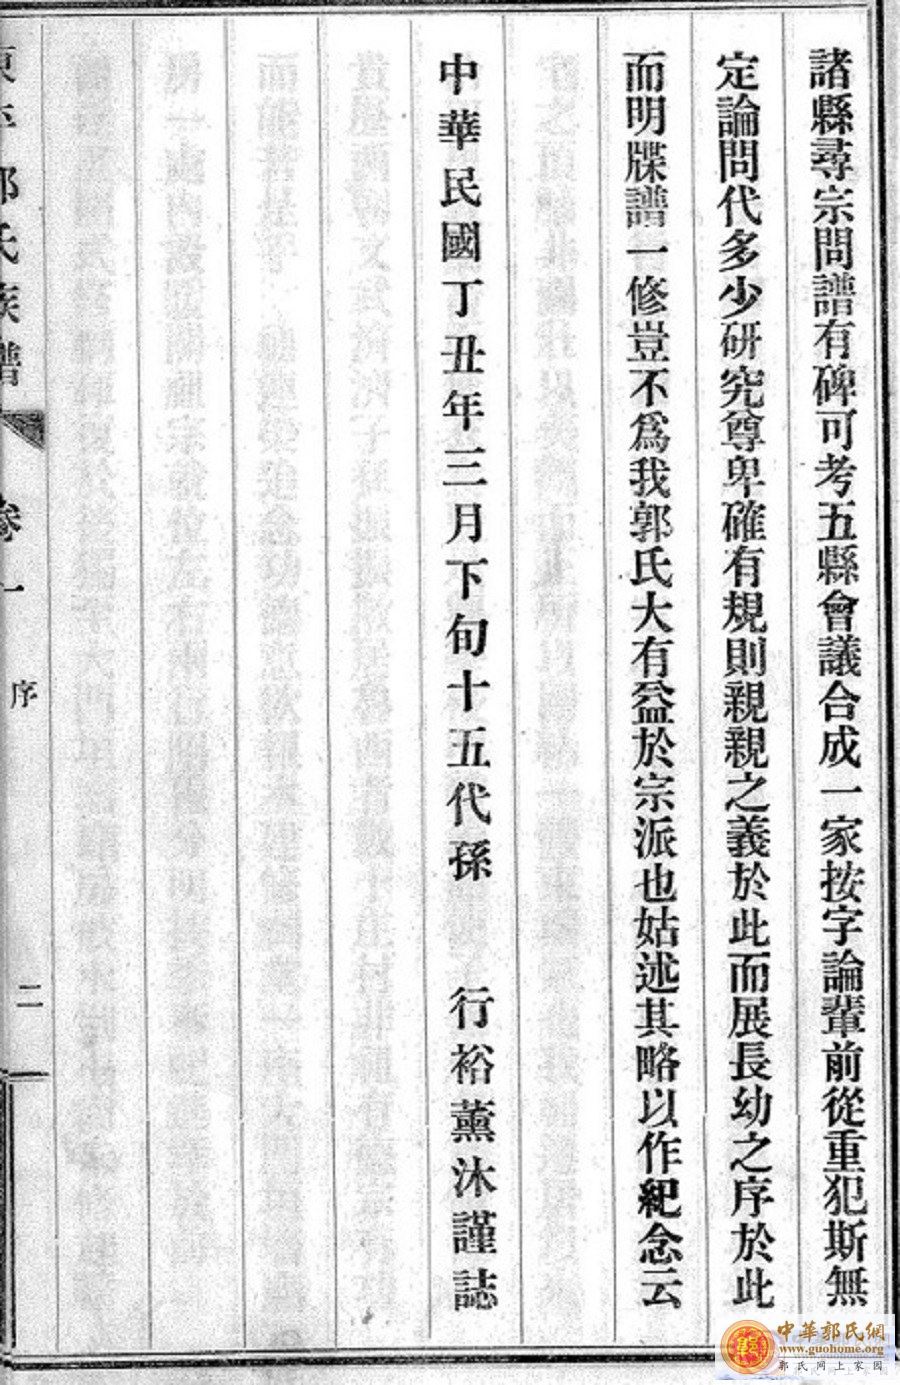 諸縣尋宗問譜有碑可考五縣會議合成一家按字論輩前從重犯斯無
定論問代多少研究尊卑確有規則親親之義於此而展長幼之序於此
而明牒譜一修豈不爲我郭氏大有益於宗派也姑述其略以作紀念云
中華民國丁丑年三月下旬十五代孫 行裕薰沐謹誌
東平郭氏族譜 卷一 序 二
中華郭氏網
www.guohome.org
郭氏网上家园